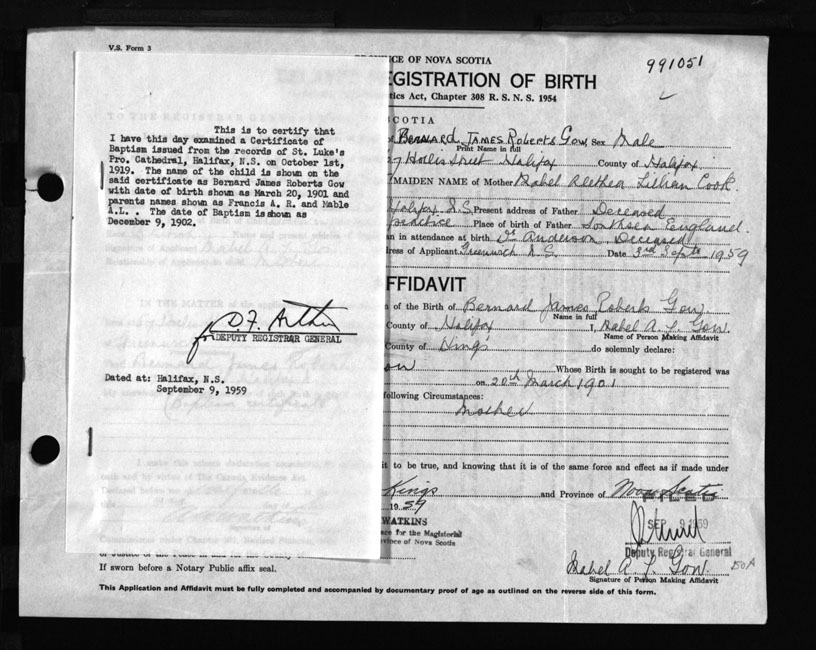 V.S. Form 3
991051
PROVINCE OF NOVA SCOTIA
REGISTRATION OF BIRTH
tics Act, Chapter 308 R. S. N. S. 1954
SCOTIA
This is to certify that
I have this day examined a Certificate of
Baptism issued from the records of St. Luke's
Pro. Cathedral, Halifax, N.S. on October 1st,
1919. The name of the child is shown on the
said certificate as Bernard James Roberts Gow
with date of birth shown as March 20, 1901 and
parents names shown as Francis A. R. and Mable
A.L. . The date of Baptism is shown as
December 9, 1902.
for
DEPUTY REGISTRAR GENERAL
Dated at: Halifax, N.S.
September 9, 1959
Bernard James Roberts Gow Sex Male
Print Name in full
27 Hollis Street Halifax County of Halifax
MAIDEN NAME of Mother Mabel Alethea Lillian Cook.
Halifax N.S. Present address of Father Deceased
Place of birth of Father England.
an in attendance at birth Dr. Anderson, Deceased
dress of Applicant Greenwich N.S. Date 3rd Sept 1959
FFIDAVIT
n of the Birth of Bernard James Roberts Gow
Name in full
County of Halifax I, Mabel A. L. Gow.
Name of Person Making Affidavit
County of Kings do solemnly declare:
ow Whose Birth is sought to be registered was
on 20th March 1901
following Circumstances:
Mother
it to be true, and knowing that it is of the same force and effect as if made under
Kings and Province of Nova Scotia
FILED
1959
SEP 9 1959
WATKINS
ace for the Magisterial
ovince of Nova Scotia
Deputy Registrar General
of Justice of the Peace in and for the County
Mabel A. L. Gow. 50A
If sworn before a Notary Public affix seal.
Signature of Person Making Affidavit
This Application and Affidavit must be fully completed and accompanied by documentary proof of age as outlined on the reverse side of this form.